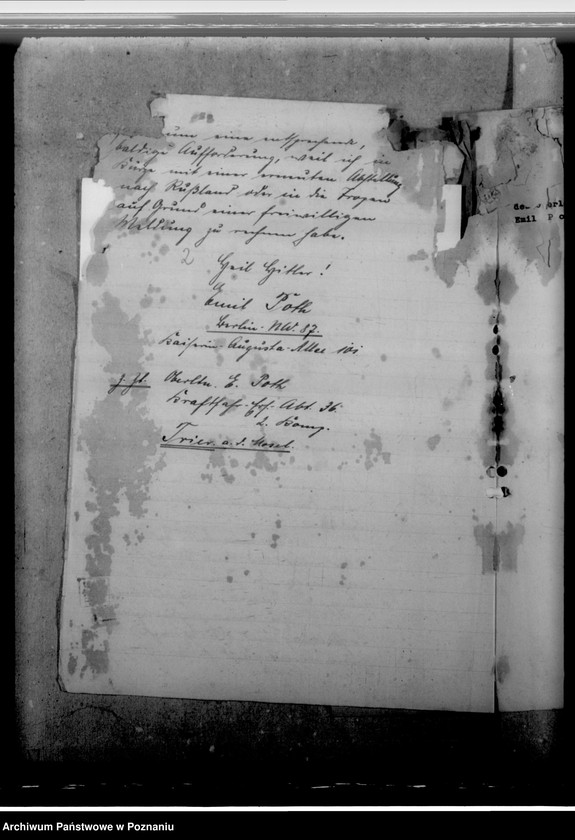 um eine entsprechende,
baldige Aufforderung, weil ich in
Kürze mit einer erneuten Abstellung
nach Rußland oder in die Tropen
auf Grund einer freiwilligen
Meldung zu rechnen habe.
2 Heil Hitler!
Emil Poth
Berlin-NW. 87.
Kaiserin-Augusta-Allee 101
z. Zt. Oberltn. E. Poth
Kraftfahr-Ers. Abt. 36.
2. Komp.
Trier a. d. Mosel.
Emil Po
Archiwum Państwowe w Poznaniu